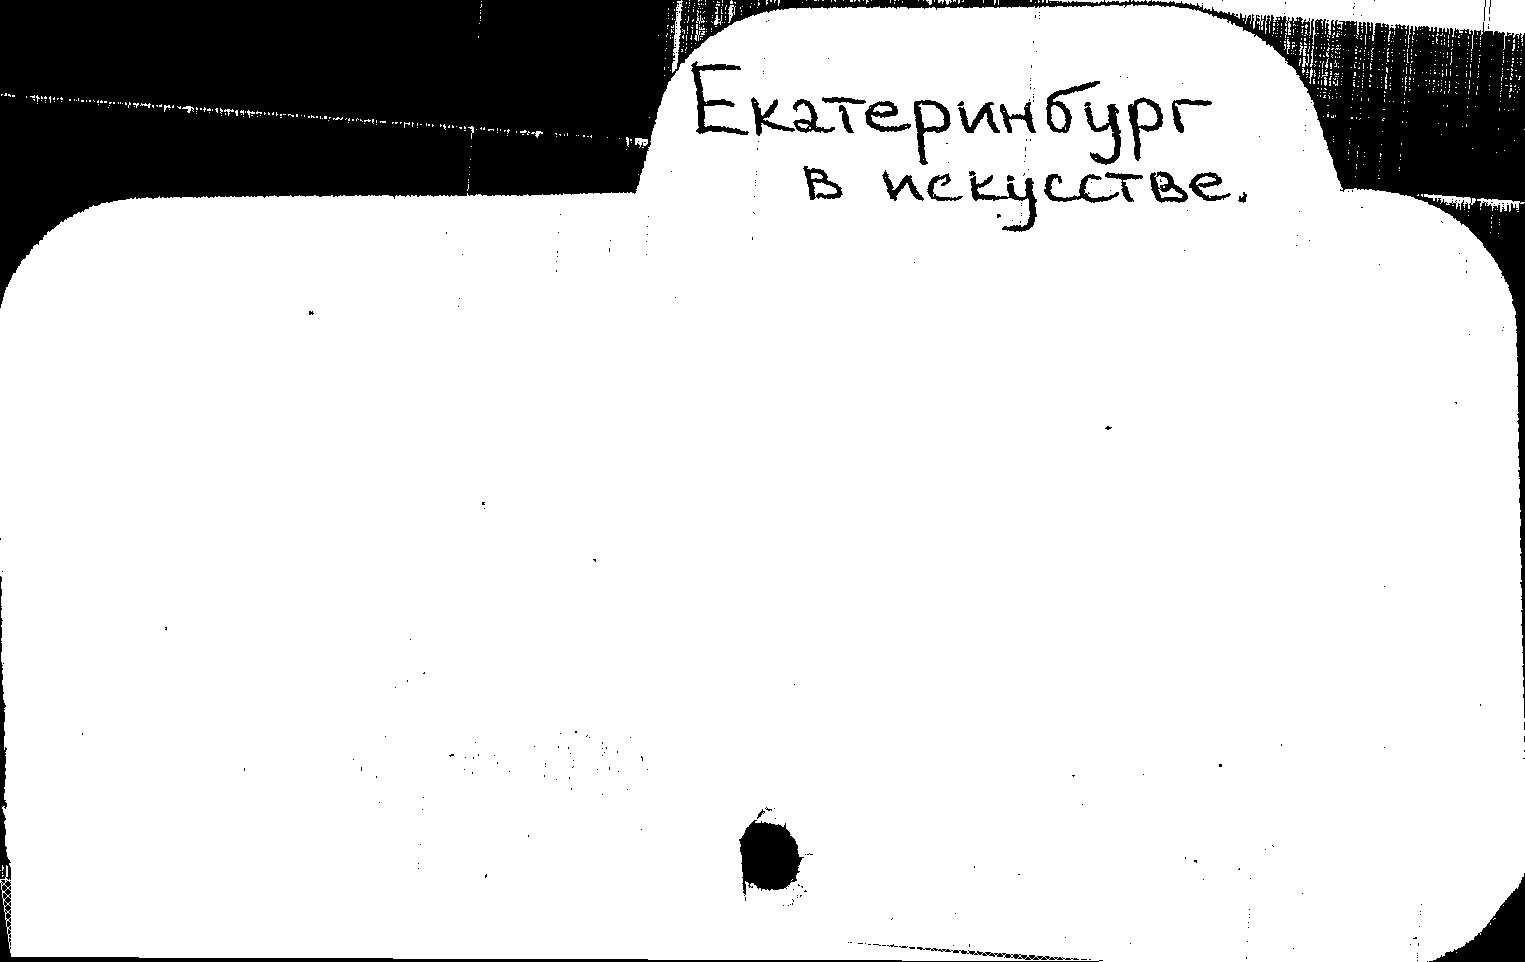 Екатеринбург
в искусстве.